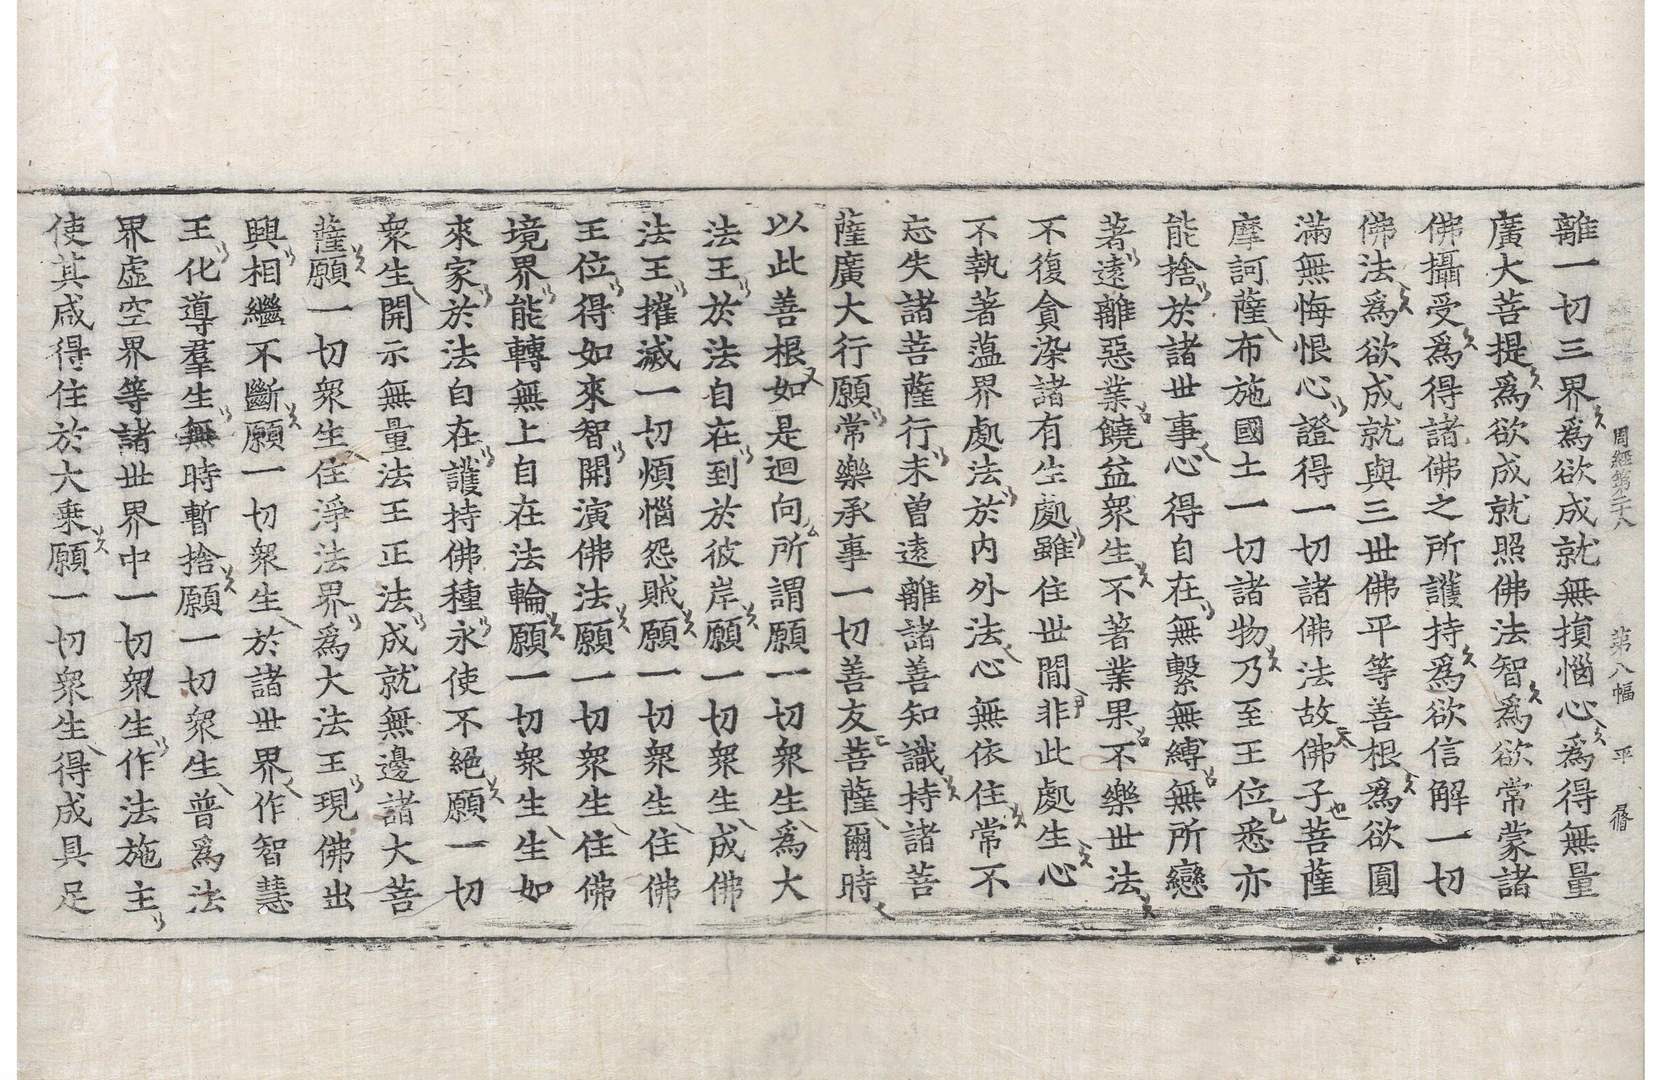 周經第二十八 第八幅 平 脩
離一切三界爲欲成就無損惱心爲得無量
廣大菩提爲欲成就照佛法智爲欲常蒙諸
佛攝受爲得諸佛之所護持爲欲信解一切
佛法爲欲成就與三世佛平等善根爲欲圓
滿無悔恨心證得一切諸佛法故佛子菩薩
摩訶薩布施國土一切諸物乃至王位悉亦
能捨於諸世事心得自在無繫無縛無所戀
著遠離惡業饒益衆生不著業果不樂世法
不復貪染諸有生處雖住世間非此處生心
不執著蘊界處法於內外法心無依住常不
忘失諸菩薩行未曾遠離諸善知識持諸菩
薩廣大行願常樂承事一切善友菩薩爾時
以此善根如是迴向所謂願一切衆生爲大
法王於法自在到於彼岸願一切衆生成佛
法王摧滅一切煩惱怨賊願一切衆生住佛
王位得如來智開演佛法願一切衆生住佛
境界能轉無上自在法輪願一切衆生生如
來家於法自在護持佛種永使不絕願一切
衆生開示無量法王正法成就無邊諸大菩
薩願一切衆生住淨法界爲大法王現佛出
興相繼不斷願一切衆生於諸世界作智慧
王化導羣生無時暫捨願一切衆生普爲法
界虛空界等諸世界中一切衆生作法施主
使其咸得住於大乗願一切衆生得成具足